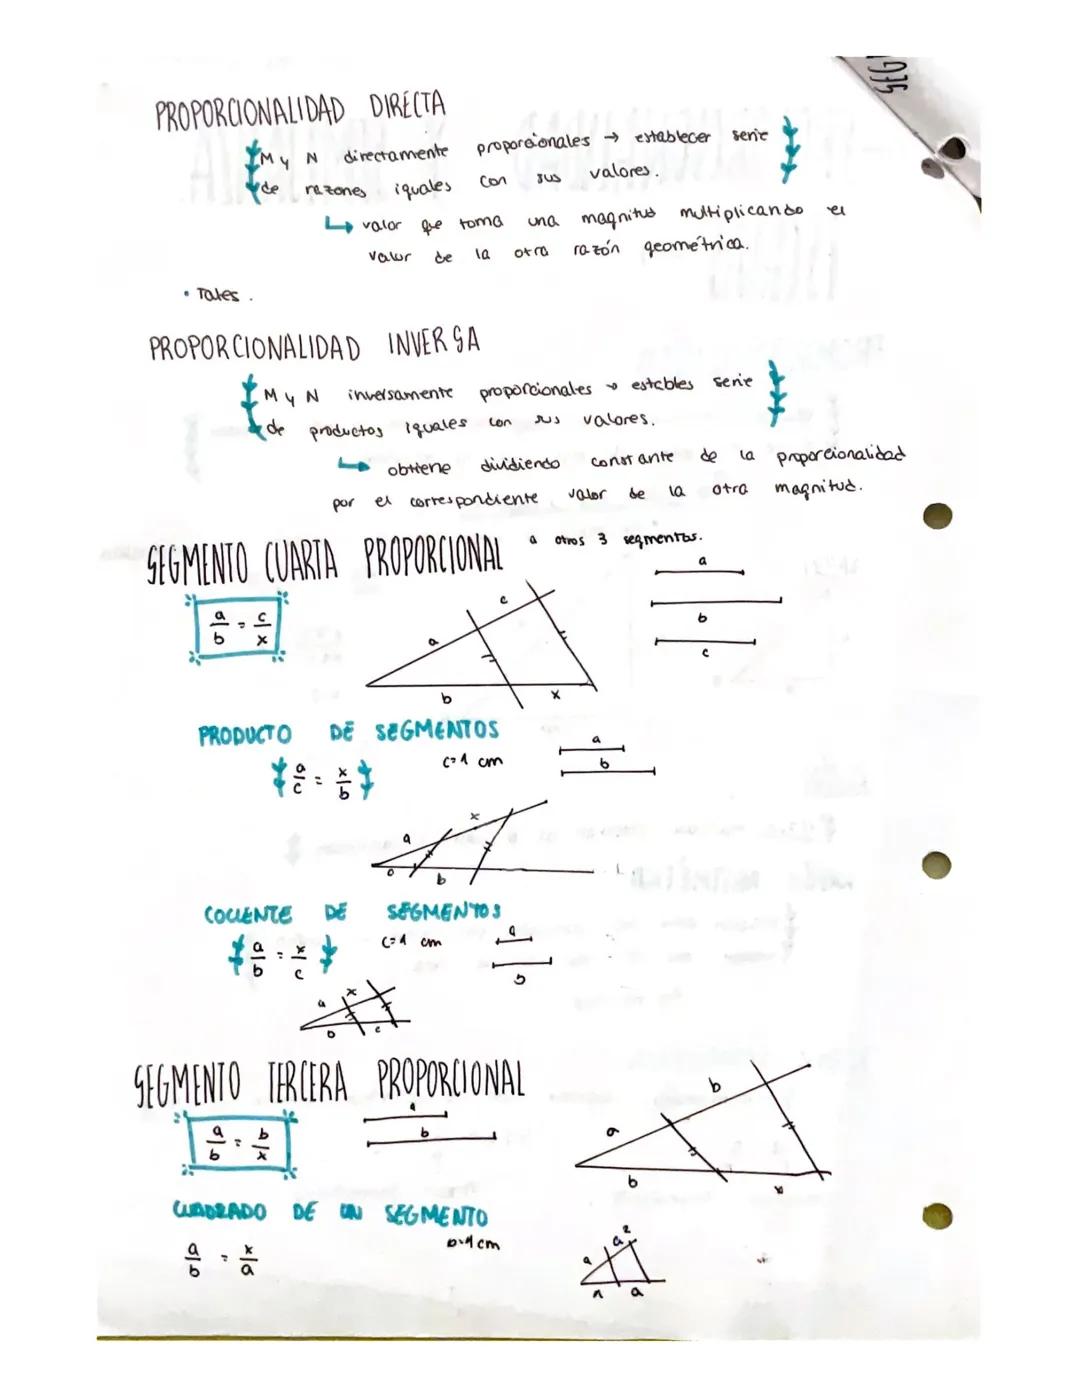 PROPORCIONALIDAD DIRECTA
M y N directamente proporcionales → establecer serie
de razones iguales con sus valores.
↳ valor que toma una magnitud multiplicando el
valor de la otra razón geométrica.
• Tales.
PROPORCIONALIDAD INVERSA
M y N inversamente proporcionales → estables serie
de productos iguales con sus valores.
↳ obtiene dividiendo constante de la proporcionalidad
por el correspondiente valor de la otra magnitud.
SEGMENTO CUARTA PROPORCIONAL a otros 3 segmentos.
a/b = c/x
a
b
c
a c
b x
PRODUCTO DE SEGMENTOS
a/c = x/b
c=1 cm
a
b
a x
b
COCIENTE DE SEGMENTOS
a/b = x/c
c=1 cm
a
b
a x
b c
SEGMENTO TERCERA PROPORCIONAL
a/b = b/x
a
b
a b
b x
CUADRADO DE UN SEGMENTO
a/b = x/a
b=1cm
a a²
a